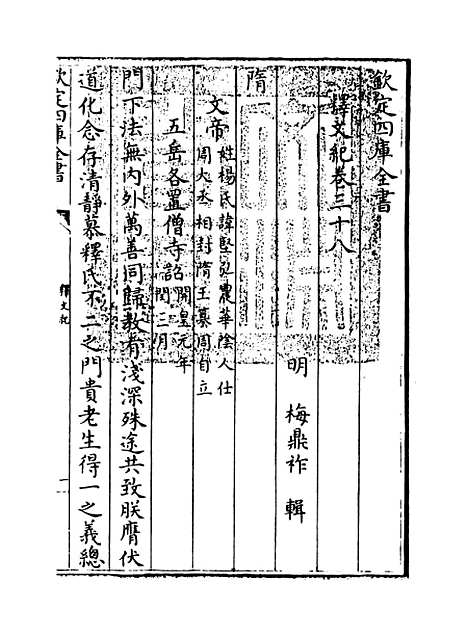 欽定四庫全書
釋文紀卷三十八
明 梅鼎祚 輯
隋
文帝姓楊氏諱堅弘農華陰人仕
周大丞相封隋王篡周自立
五岳各置僧寺詔開皇元年
閏三月
門下法無內外萬善同歸教有淺深殊途共致朕膺伏
道化念存清靜慕釋氏不二之門貴老生得一之義總
欽定四庫全書
釋文紀
一